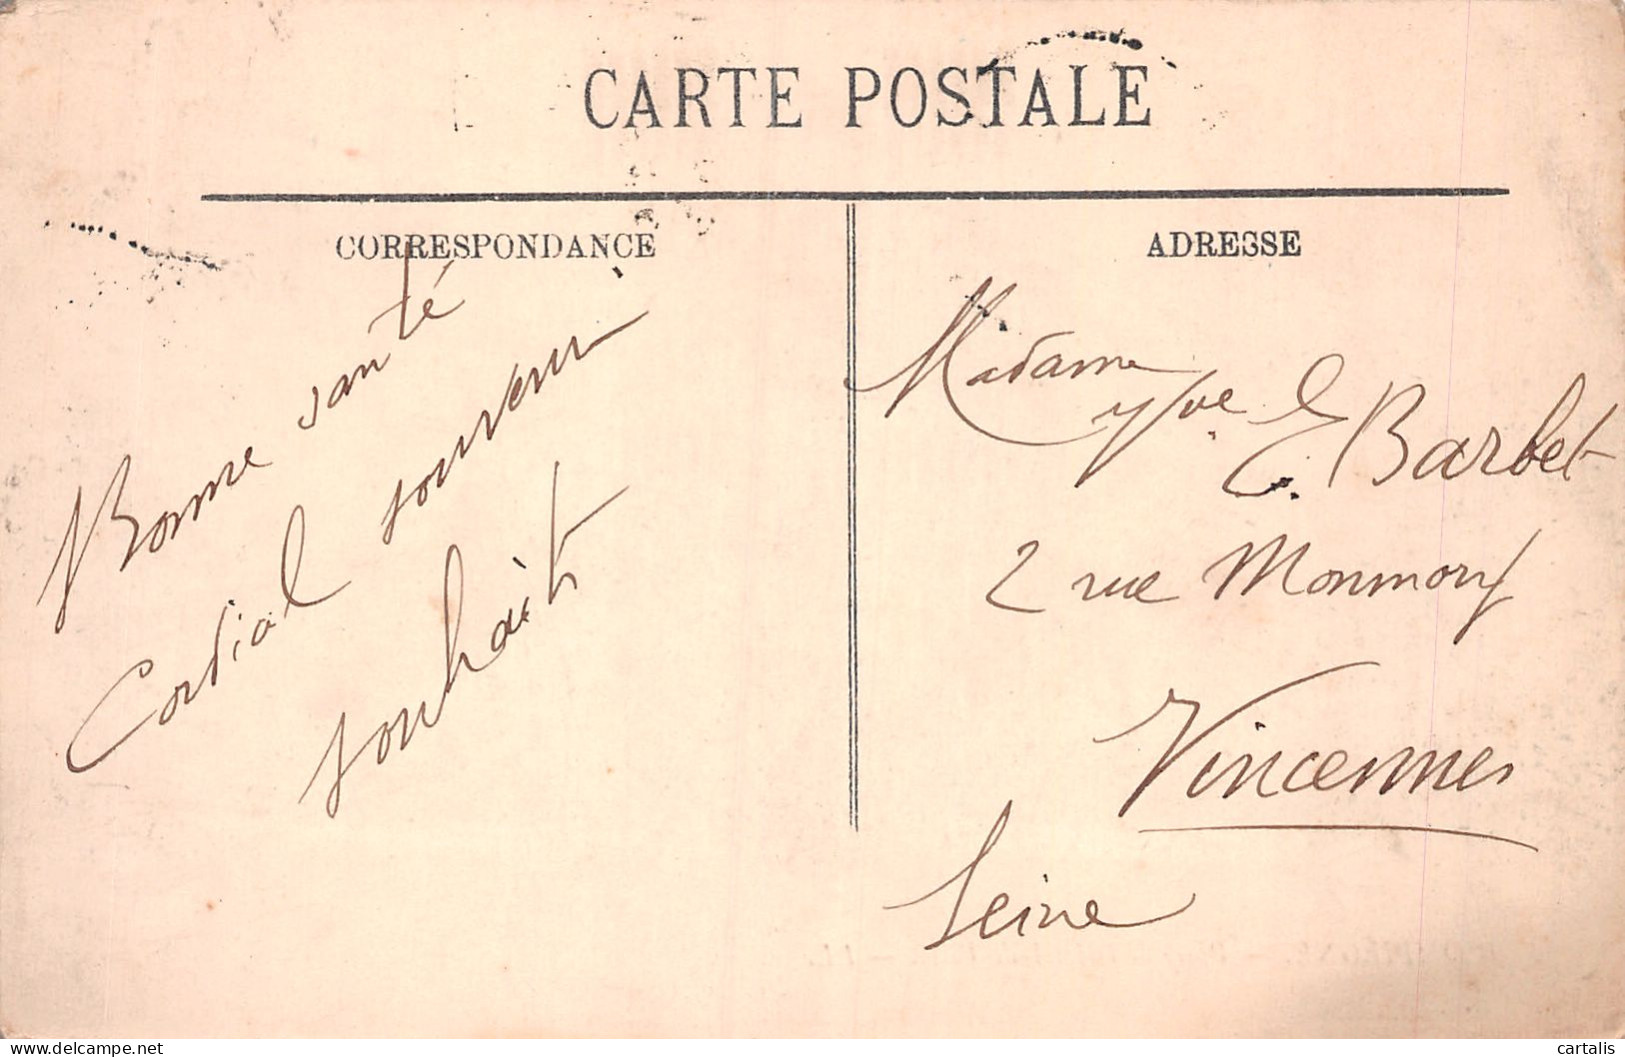 CARTE POSTALE
CORRESPONDANCE
Bonne santé
Cordial souvenir
souhaits
ADRESSE
Madame
Vve E. Barbet
2 rue Monmory
Vincennes
Seine
cartalis
delcampe.net